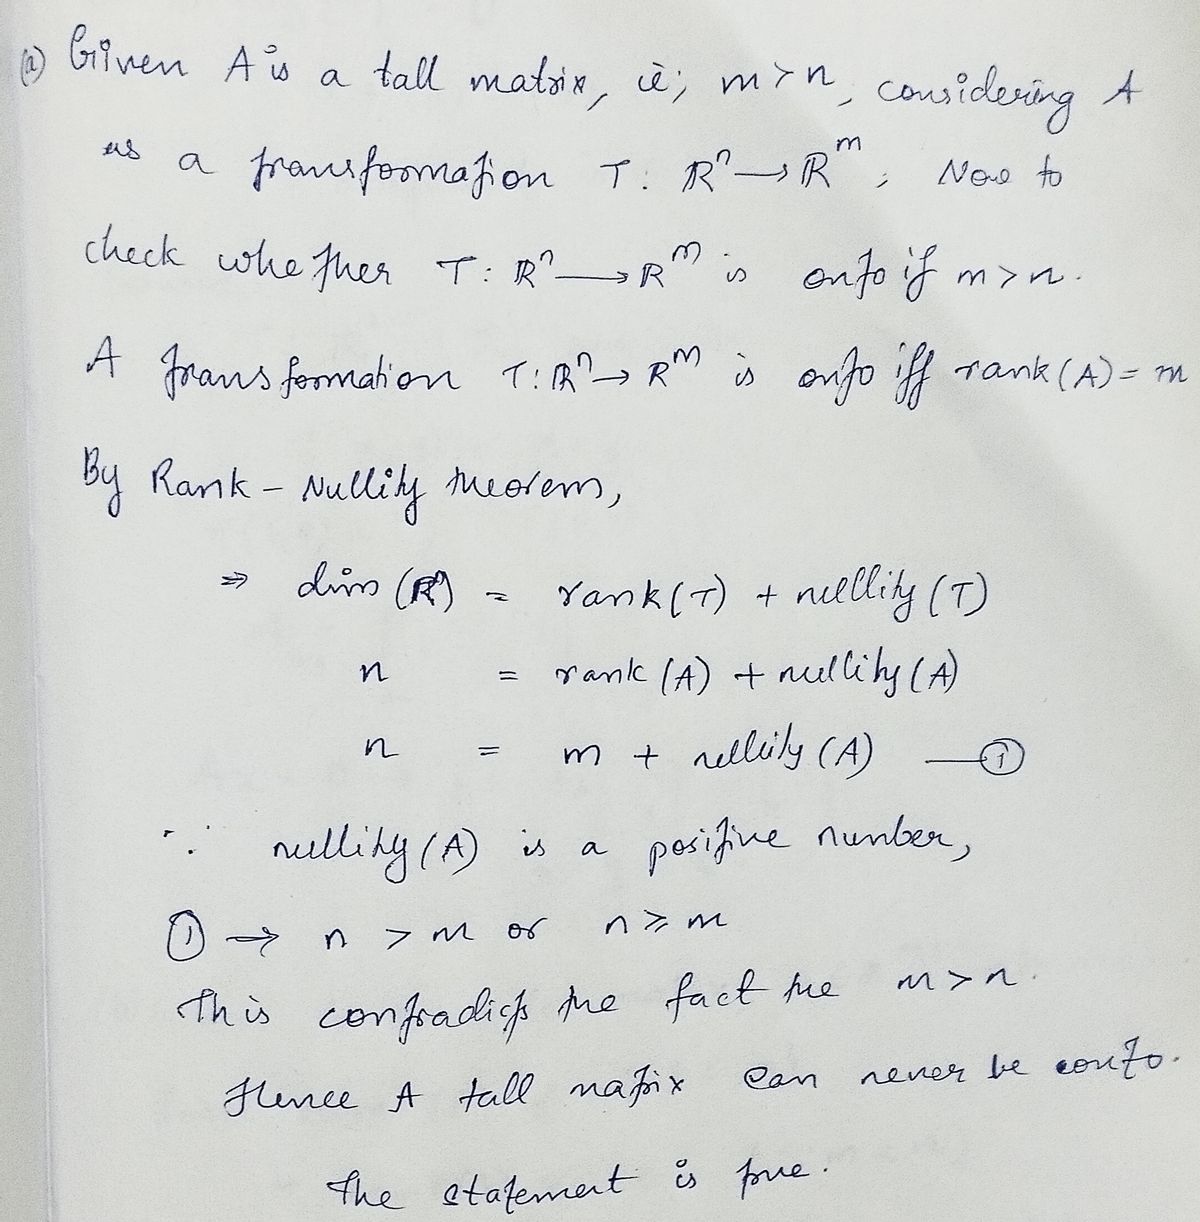 (a) Given A is a tall matrix, ie; m > n, considering A
as a transformation T: ℝⁿ → ℝᵐ, Now to
check whether T: ℝⁿ → ℝᵐ is onto if m > n.
A transformation T: ℝⁿ → ℝᵐ is onto iff rank(A) = m
By Rank - Nullity theorem,
⇒ dim (ℝⁿ) = rank(T) + nullity (T)
n = rank (A) + nullity (A)
n = m + nullity (A) — ①
∵ nullity (A) is a positive number,
① → n > m or n ≥ m
This contradicts the fact the m > n.
Hence A tall matrix can never be onto.
The statement is true.